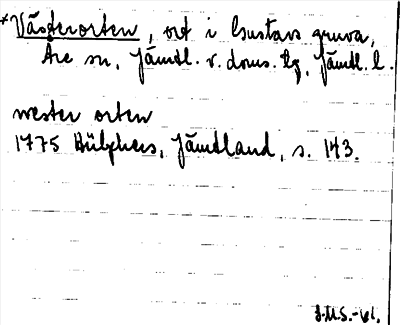 *Västerorten, ort i Gustavs gruva,
Åre sn, Jämtl. v. doms. tg, Jämtl. l.
wester orten
1775 Hülphers, Jämtland, s. 143.
J.M.S.-61.